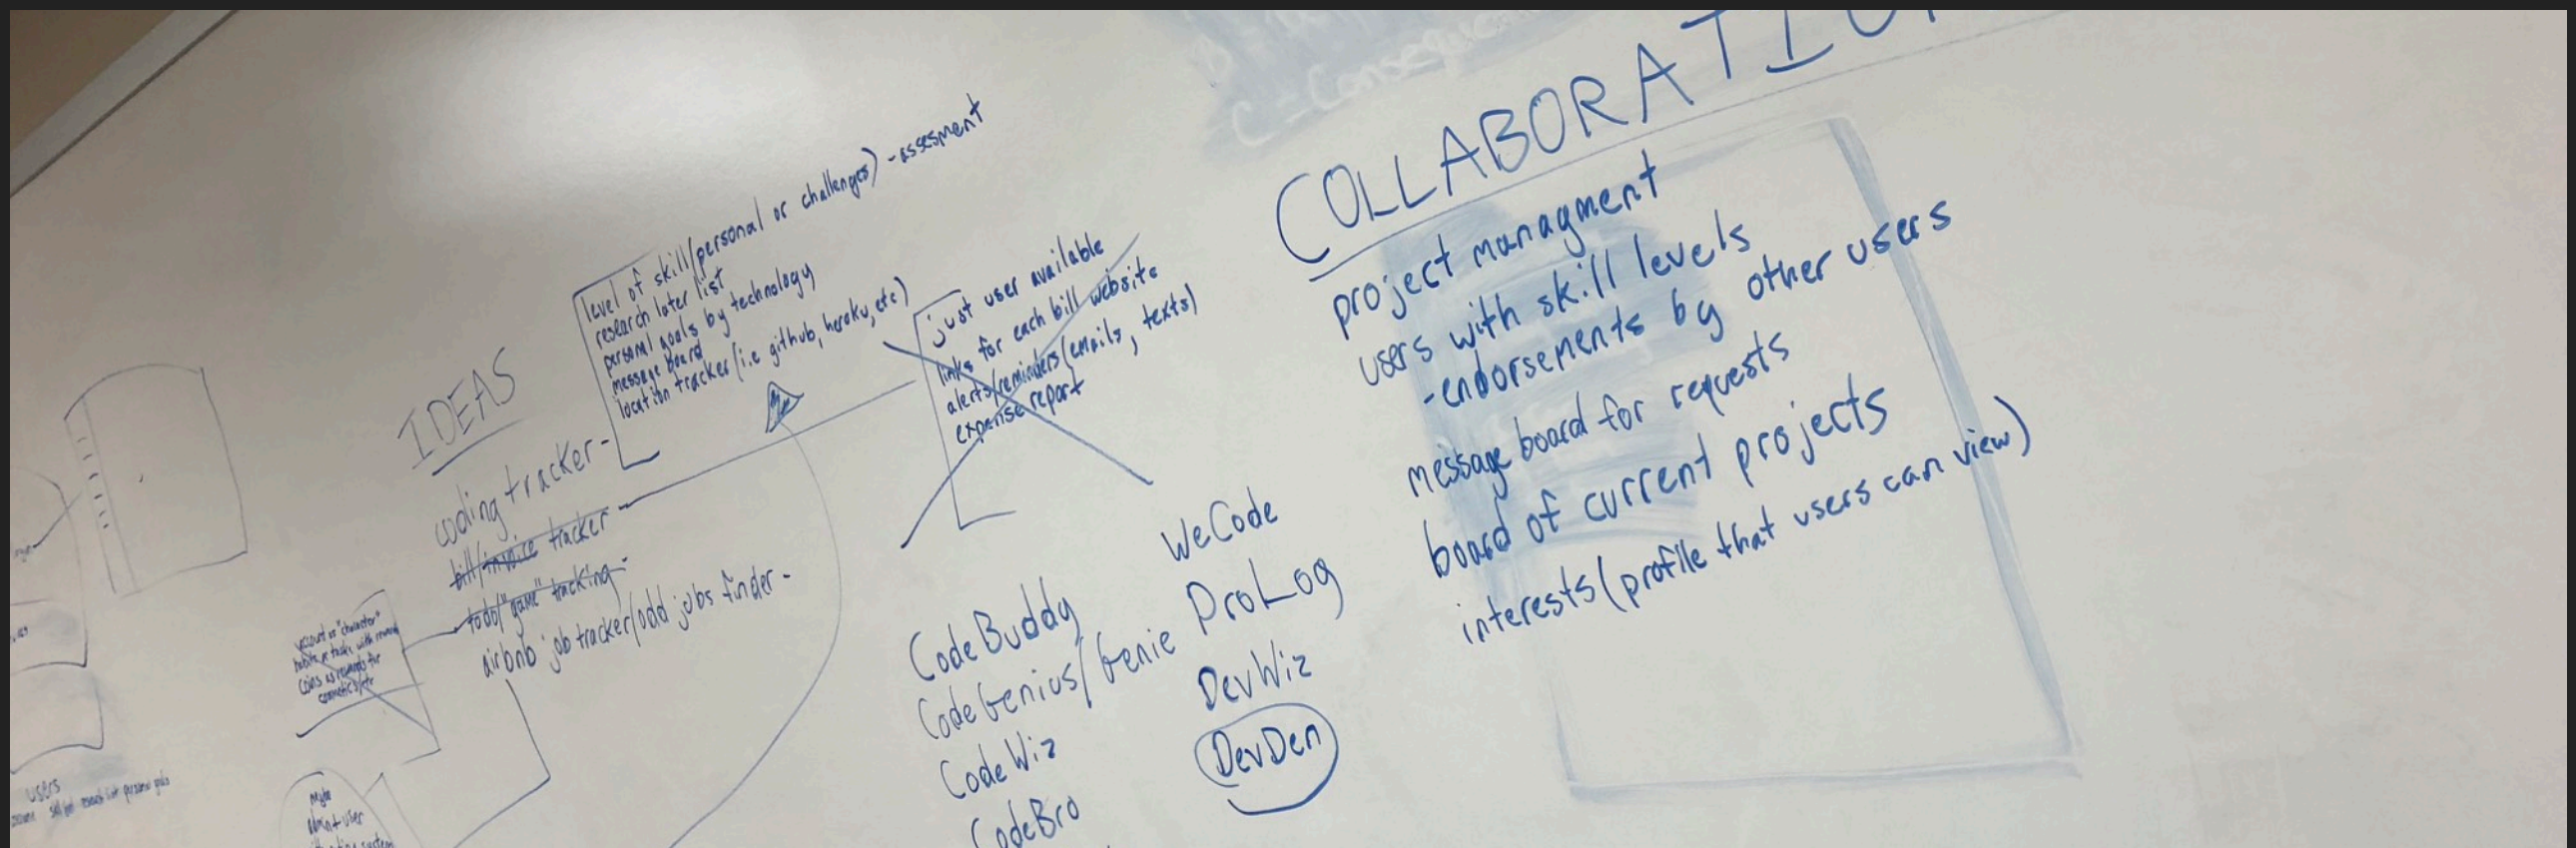 C - Conseq
COLLABORATION
project managment
users with skill levels
-endorsements by other users
message board for requests
board of current projects
interests (profile that users can view)
IDEAS
coding tracker -
bill/invoice tracker -
todo/"game" tracking -
airbnb job tracker/odd jobs finder -
level of skill/personal or challenges) - assesment
research later list
personal goals by technology
message board
location tracker (i.e github, heroku, etc)
just user available
links for each bill website
alerts/reminders (emails, texts)
expense report
account as "character"
habits or tasks with reward
coins as rewards for
cosmetics/etc
CodeBuddy
CodeGenius/Genie
CodeWiz
CodeBro
WeCode
ProLog
DevWiz
DevDen
users
user
system